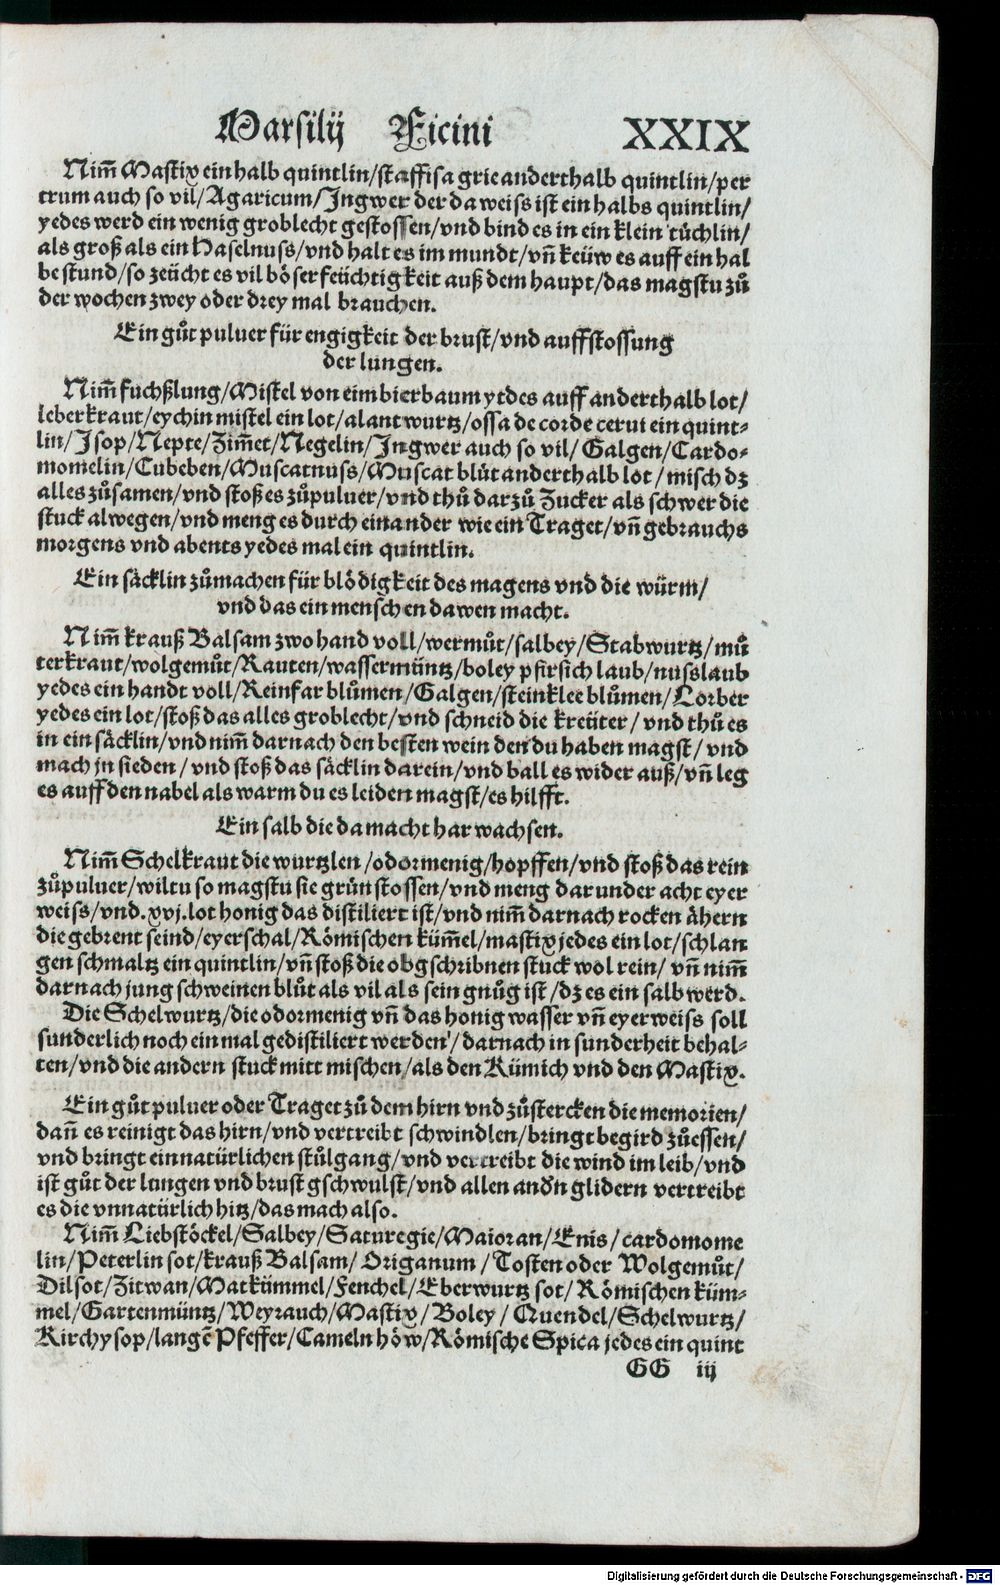 Marsilij Ficini XXIX
Nim̃ Mastix ein halb quintlin/staffisagrie anderthalb quintlin/per
trum auch so vil/Agaricum/Ingwer der da weiss ist ein halbs quintlin/
yedes werd ein wenig groblecht gestossen/vnd bind es in ein klein tüchlin/
als groß als ein Haselnuss/vnd halt es im mundt/vñ keüw es auff ein hal
be stund/so zeücht es vil böser feüchtigkeit auß dem haupt/das magstu zů
der wochen zwey oder drey mal brauchen.
Ein gůt puluer für engigkeit der brust/vnd auffstossung
der lungen.
Nim̃ fuchßlung/Mistel von eim bierbaum ytdes auff anderthalb lot/
leberkraut/eychin mistel ein lot/alantwurtz/ossa de corde cerui ein quint-
lin/Isop/Nepte/Zim̃et/Negelin/Ingwer auch so vil/Galgen/Cardo-
momelin/Cubeben/Muscatnuss/Muscat blůt anderthalb lot/misch dz
alles zůsamen/vnd stoß es zůpuluer/vnd thů darzů Zucker als schwer die
stuck alwegen/vnd meng es durch einander wie ein Traget/vñ gebrauchs
morgens vnd abents yedes mal ein quintlin.
Ein säcklin zůmachen für blödigkeit des magens vnd die würm/
vnd das ein menschen dawen macht.
Nim̃ krauß Balsam zwo hand voll/wermůt/salbey/Stabwurtz/mů
terkraut/wolgemůt/Rauten/wassermüntz/boley pfirsich laub/nusslaub
yedes ein handt voll/Reinfar blůmen/Galgen/steinklee blůmen/Lorber
yedes ein lot/stoß das alles groblecht/vnd schneid die kreüter/vnd thů es
in ein säcklin/vnd nim̃ darnach den besten wein den du haben magst/vnd
mach jn sieden/vnd stoß das säcklin darein/vnd ball es wider auß/vñ leg
es auff den nabel als warm du es leiden magst/es hilfft.
Ein salb die da macht har wachsen.
Nim̃ Schelkraut die wurtzlen/odormenig/hopffen/vnd stoß das rein
zůpuluer/wiltu so magstu sie grün stossen/vnd meng darunder acht eyer
weiss/vnd.xvj.lot honig das distiliert ist/vnd nim̃ darnach rocken ähern
die gebrent seind/eyerschal/Römischen küm̃el/mastix jedes ein lot/schlan
gen schmaltz ein quintlin/vñ stoß die obgschribnen stuck wol rein/vñ nim̃
darnach jung schweinen blůt als vil als sein gnůg ist/dz es ein salb werd.
Die Schelwurtz/die odormenig vñ das honig wasser vñ eyerweiss soll
sunderlich noch ein mal gedistiliert werden/darnach in sunderheit behal-
ten/vnd die andern stuck mitt mischen/als den Kümich vnd den Mastix.
Ein gůt puluer oder Traget zů dem hirn vnd zůstercken die memorien/
dañ es reinigt das hirn/vnd vertreibt schwindlen/bringt begird zůessen/
vnd bringt ein natürlichen stůlgang/vnd vertreibt die wind im leib/vnd
ist gůt der lungen vnd brust gschwulst/vnd allen andn glidern vertreibt
es die vnnatürlich hitz/das mach also.
Nim̃ Liebstöckel/Salbey/Saturegie/Maioran/Enis/cardomome
lin/Peterlin sot/krauß Balsam/Origanum/Tosten oder Wolgemůt/
Dilsot/Zitwan/Matkümmel/Fenchel/Eberwurtz sot/Römischen küm-
mel/Gartenmüntz/Weyrauch/Mastix/Boley/Quendel/Schelwurtz/
Kirchysop/langẽ Pfeffer/Cameln höw/Römische Spica jedes ein quint
GG iij
Digitalisierung gefördert durch die Deutsche Forschungsgemeinschaft - DFG